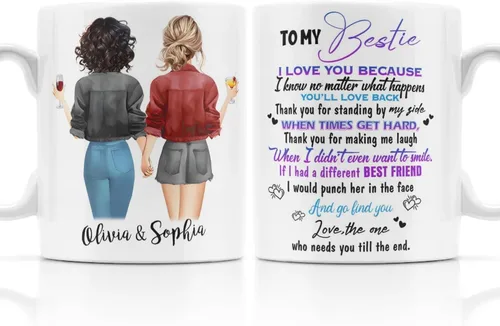 Olivia & Sophia
TO MY Bestie
I LOVE YOU BECAUSE
I know no matter what happens
YOU'LL LOVE BACK
Thank you for standing by my side
WHEN TIMES GET HARD,
Thank you for making me laugh
When I didn't even want to smile.
If I had a different BEST FRIEND
I would punch her in the face
And go find you
Love, the one
who needs you till the end.